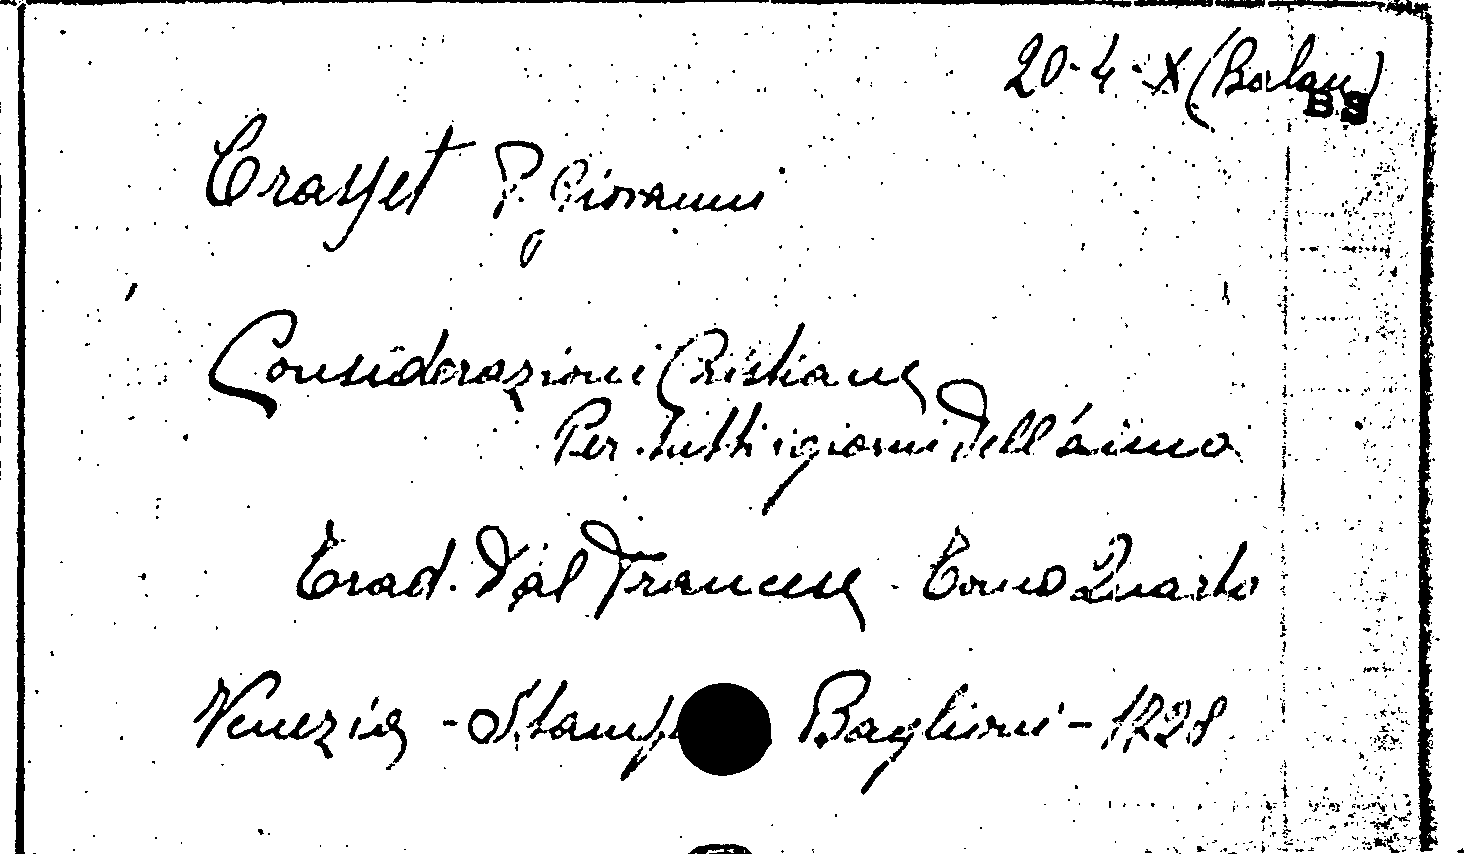 20-4-X (Balan)
BS
Crasset P. Giovanni
Considerazioni Cristiane
Per tutti i giorni dell'anno
Trad. Dal Francese - Tomo Quarto
Venezia - Stamp Baglioni - 1728